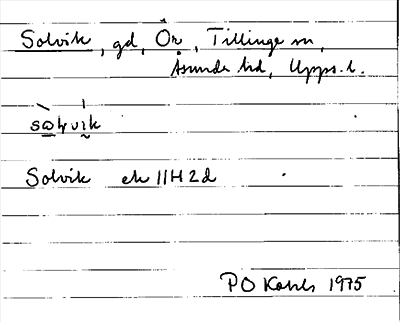 Solvik, gd, Ör, Tillinge sn,
Åsunda hd, Upps. l.
Solvik ek 11H2d
PO 1975